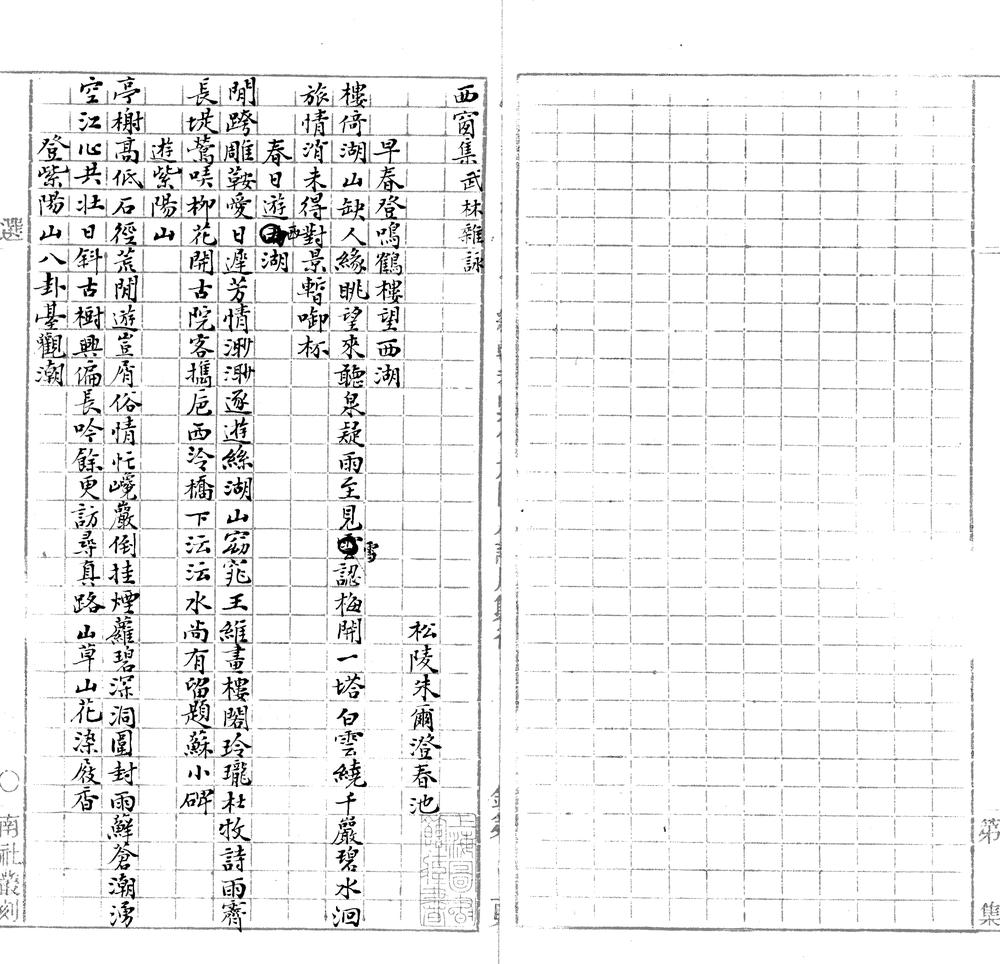 西窗集武林雜詠
松陵朱爾澄春池
早春登鳴鶴樓望西湖
樓倚湖山缺人緣眺望來聽泉疑雨至見雪認梅開一塔白雲繞千嚴碧水洄
旅情消未得對景暫啣杯
春日遊西湖
閒跨雕鞍愛日遲芳情渺渺逐遊絲湖山窈窕王維畫樓閣玲瓏杜牧詩雨霽
長堤鶯啼柳花開古院客攜卮西泠橋下沄沄水尚有留題蘇小碑
遊紫陽山
亭榭高低石徑荒閒遊豈屑俗情忙巉巖倒挂煙蘿碧深洞圍封雨蘚蒼潮湧
空江心共壯日斜古樹興偏長吟餘更訪尋真路山草山花染屐香
登紫陽山八卦臺觀潮
選
南社叢刻
第
集
上海圖書館藏書